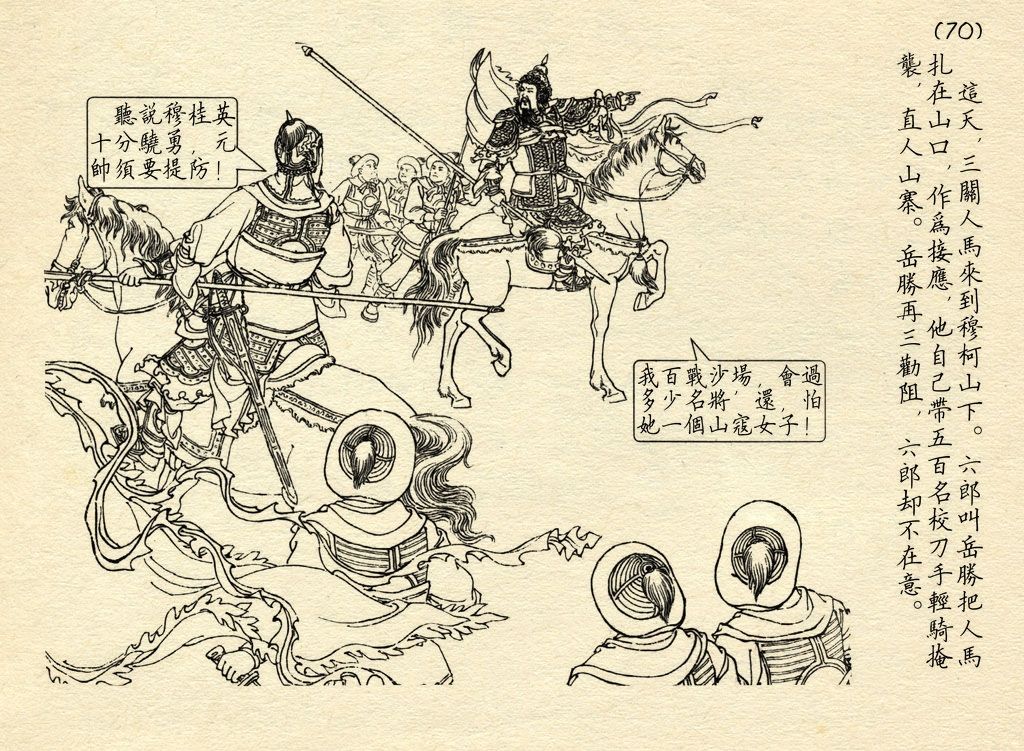 (70)
這天，三關人馬來到穆柯山下。六郎叫岳勝把人馬
扎在山口，作爲接應，他自己帶五百名校刀手輕騎掩
襲，直人山寨。岳勝再三勸阻，六郎却不在意。
聽説穆桂英
十分驍勇，元
帥須要提防！
我百戰沙場，會過
多少名將，還，怕
她一個山寇女子！